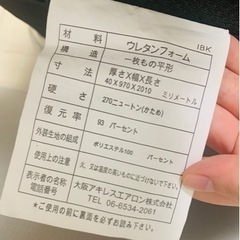 IBK
材料 ウレタンフォーム
構造 一枚もの平形
寸法 厚さX幅X長さ
40X970X2010 ミリメートル
硬さ 270ニュートン(かため)
復元率 93 パーセント
外装生地の組成 ポリエステル100 パーセント
使用上の注意 火、又は温度の高いものに近づけないで下さい。
表示者の名称 大阪アキレスエアロン株式会社
電話番号 TEL 06-6534-2061
*ご使用の前に裏面を必ずお読み下さい。